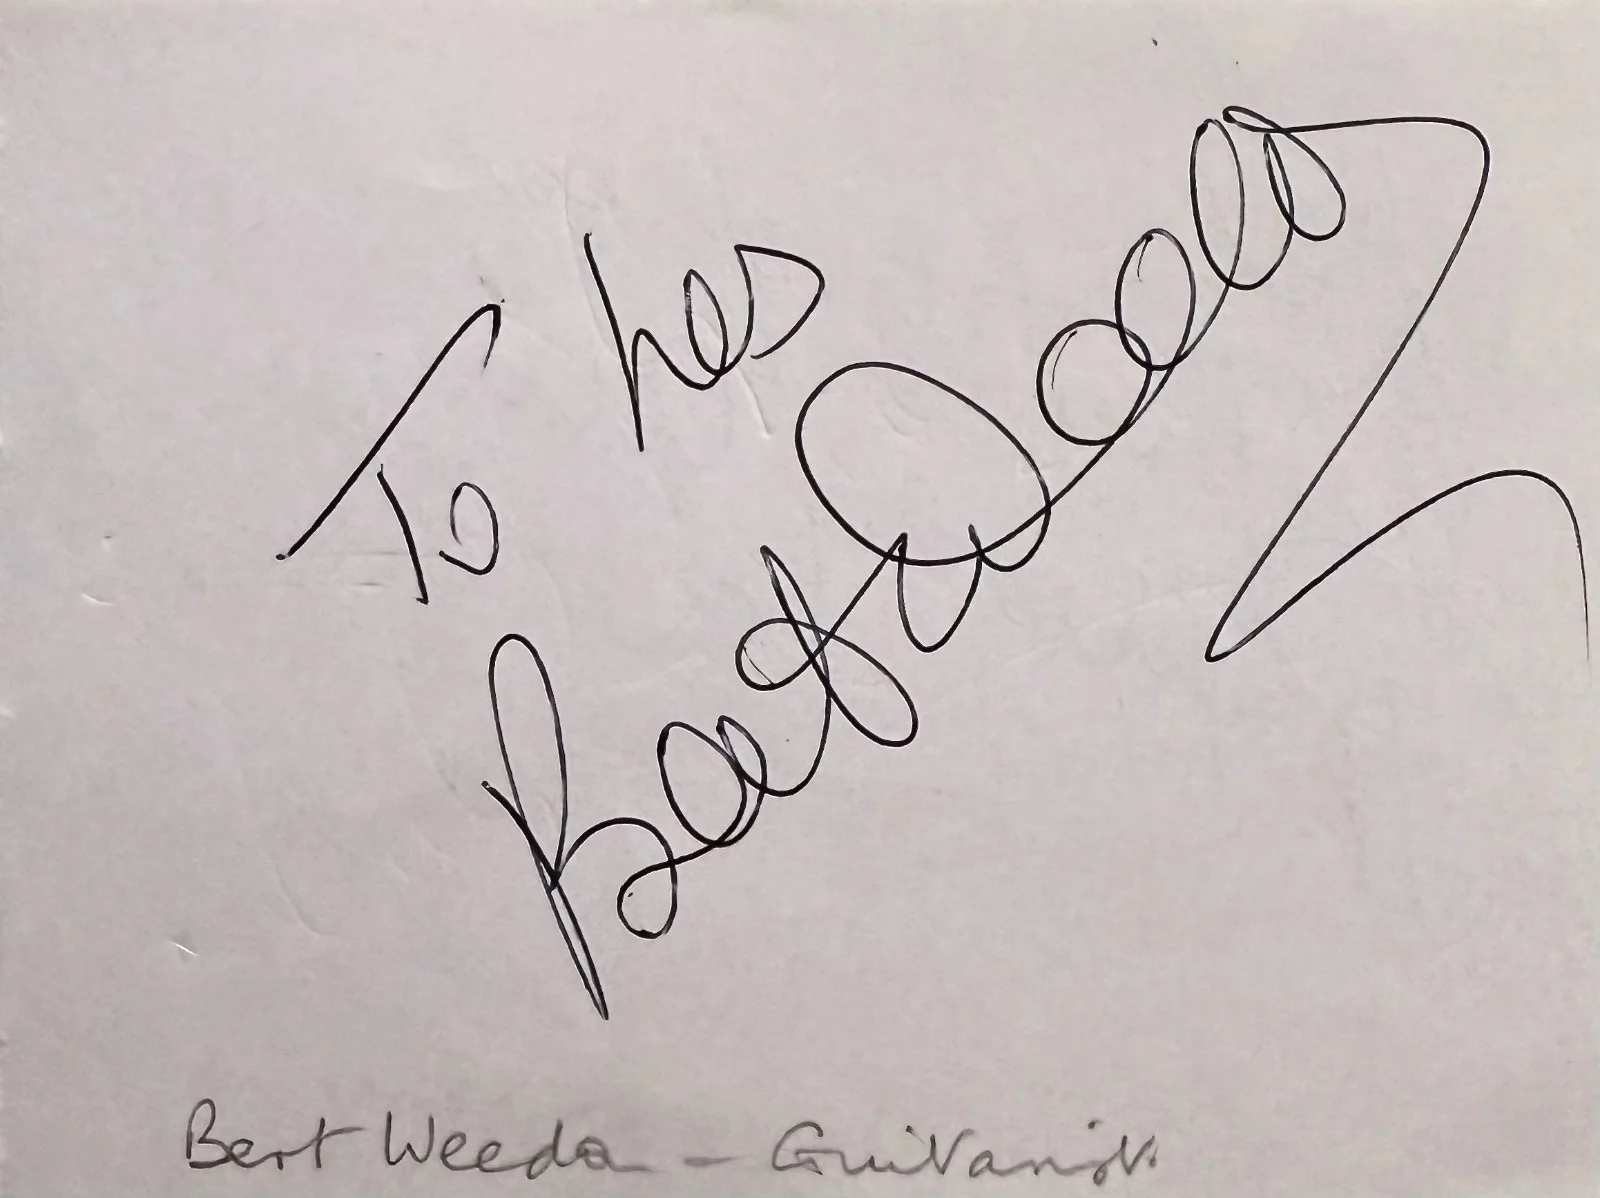 To Les
Bert Weedon
Bert Weedon - Guitarist.